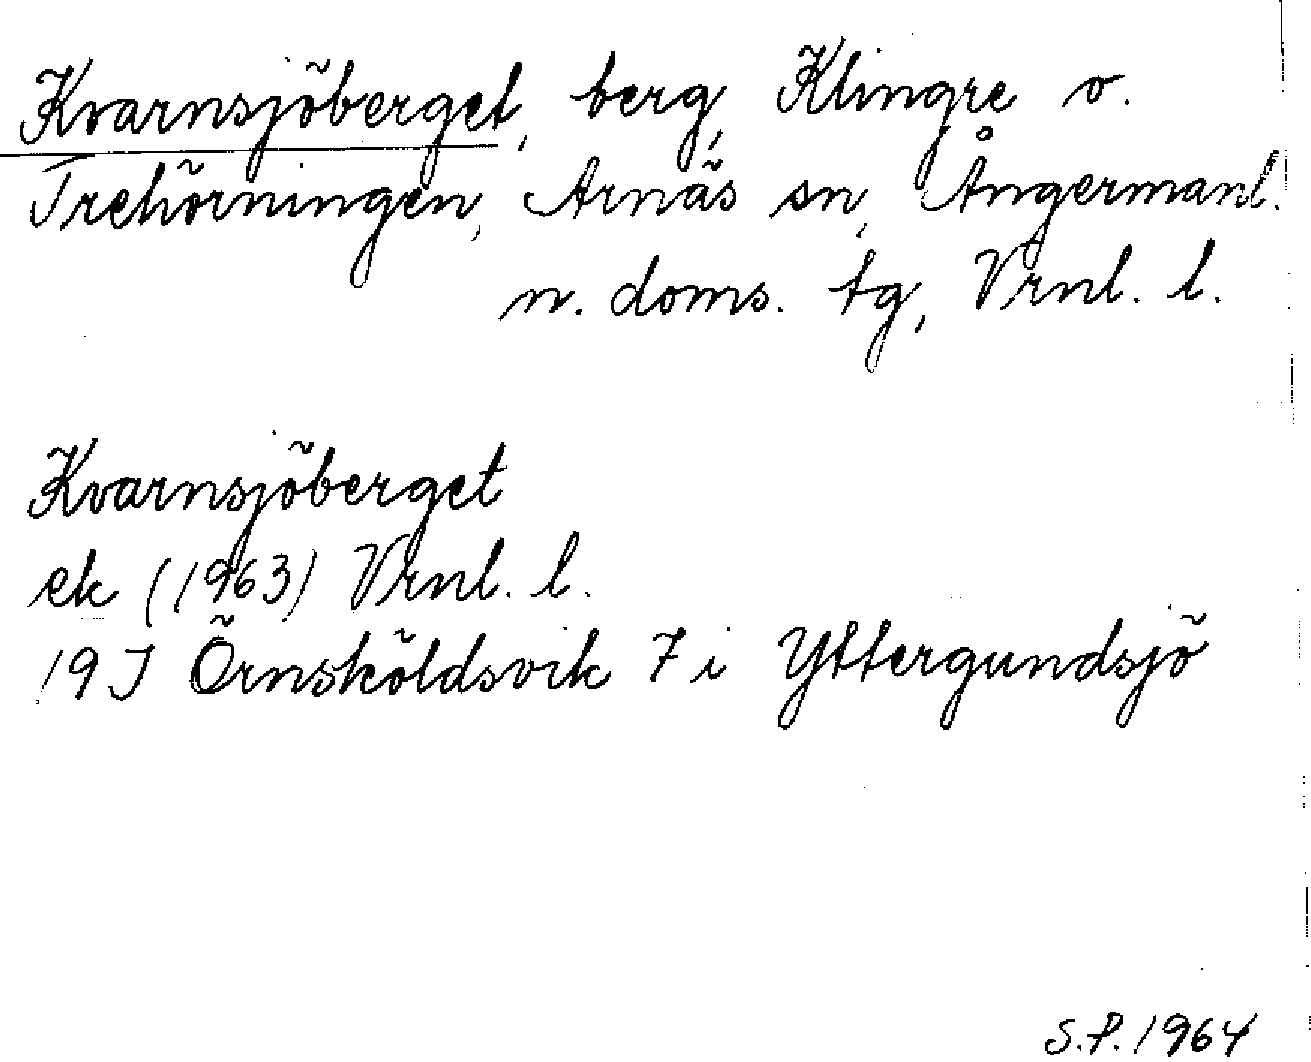 Kvarnsjöberget, berg, Klingre o.
Trehörningen, Arnäs sn, Ångermanl.
n. doms. tg, Vrnl. l.
Kvarnsjöberget
ek (1963) Vrnl. l.
19J Örnsköldsvik 7i Yttergundsjö
S.P. 1964